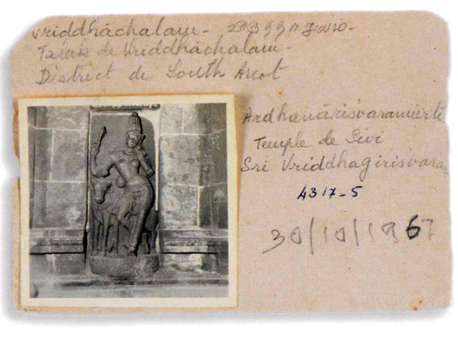 Vriddhāchalam -
Taluk de Vriddhāchalam -
District de South Arcot
Ardhanārīsvaramurti
Temple de Sivi
Sri Vriddhagirisvara
4317-5
30/10/1967